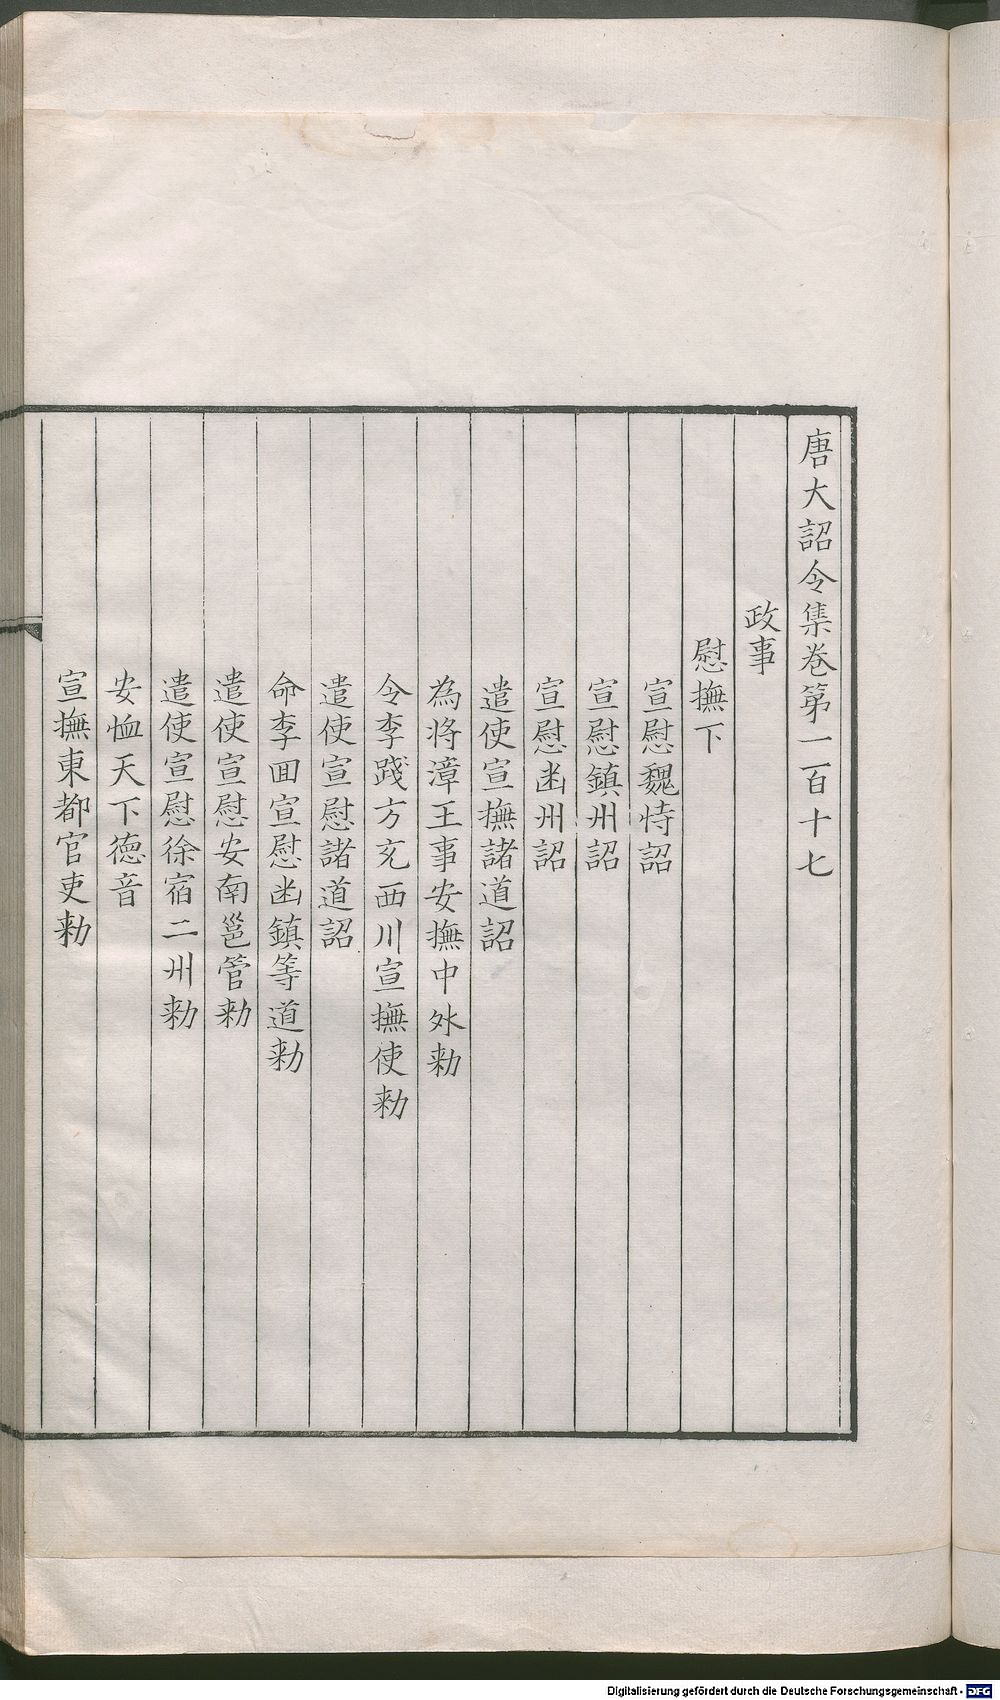 唐大詔令集卷第一百十七
政事
慰撫下
宣慰魏愽詔
宣慰鎮州詔
宣慰凾州詔
遣使宣撫諸道詔
為將漳王事安撫中外勑
令李踐方充西川宣撫使勑
遣使宣慰諸道詔
命李回宣慰凾鎮等道勑
遣使宣慰安南邕管勑
遣使宣慰徐宿二州勑
安恤天下德音
宣撫東都官吏勑
Digitalisierung gefördert durch die Deutsche Forschungsgemeinschaft - DFG